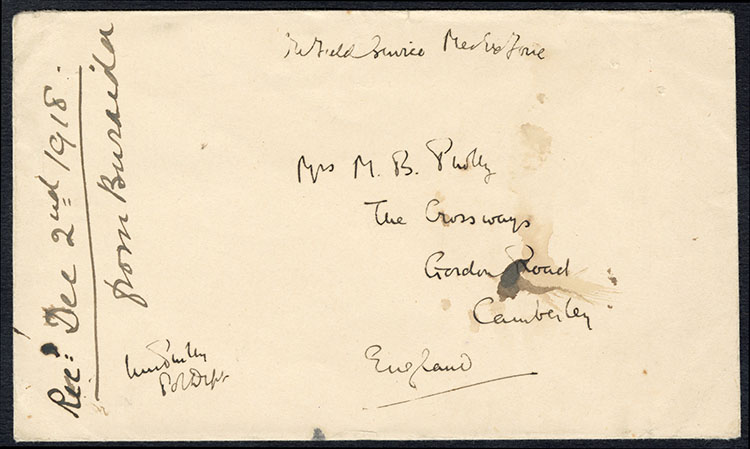 Field Service Force
Mrs M. B. Philby
The Crossways
Gordon Road
Camberley
England
Rec^d: Dec 2nd 1918.
from Buraida